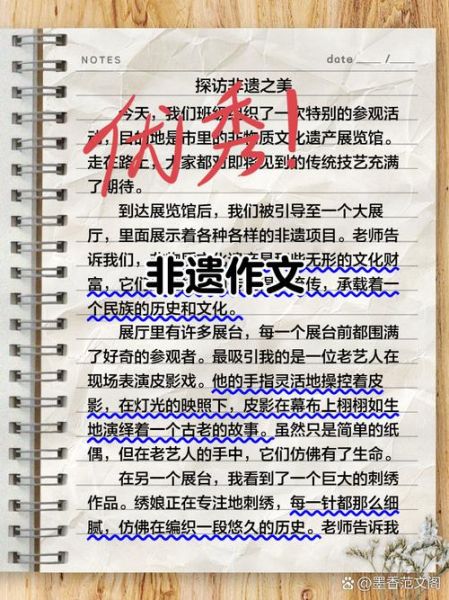 NOTES
date ____ /____
探访非遗之美
今天，我们班级组织了一次特别的参观活
动，目的地是市里的非物质文化遗产展览馆。
走在路上，大家都对即将见到的传统技艺充满
了期待。
优秀！
到达展览馆后，我们被引导至一个大展
厅，里面展示着各种各样的非遗项目。老师告
诉我们，
些无形的文化财
富，它们
流传，承载着一
个民族的历史和文化。
非遗作文
展厅里有许多展台，每一个展台前都围满
了好奇的参观者。最吸引我的是一位老艺人在
现场表演皮影戏。他的手指灵活地操控着皮
影，在灯光的映照下，皮影在幕布上栩栩如生
地演绎着一个古老的故事。虽然只是简单的纸
偶，但在老艺人的手中，它们仿佛有了生命。
在另一个展台，我看到了一个巨大的刺绣
作品。绣娘正在专注地刺绣，每一针都那么细
腻，仿佛在编织一段悠久的历史。老师告诉我
墨香范文阁